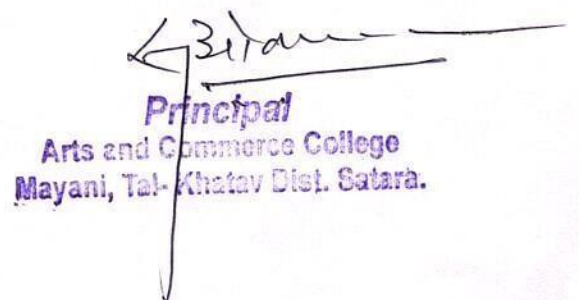 Principal
Arts and Commerce College
Mayani, Tal- Khatav Dist. Satara.